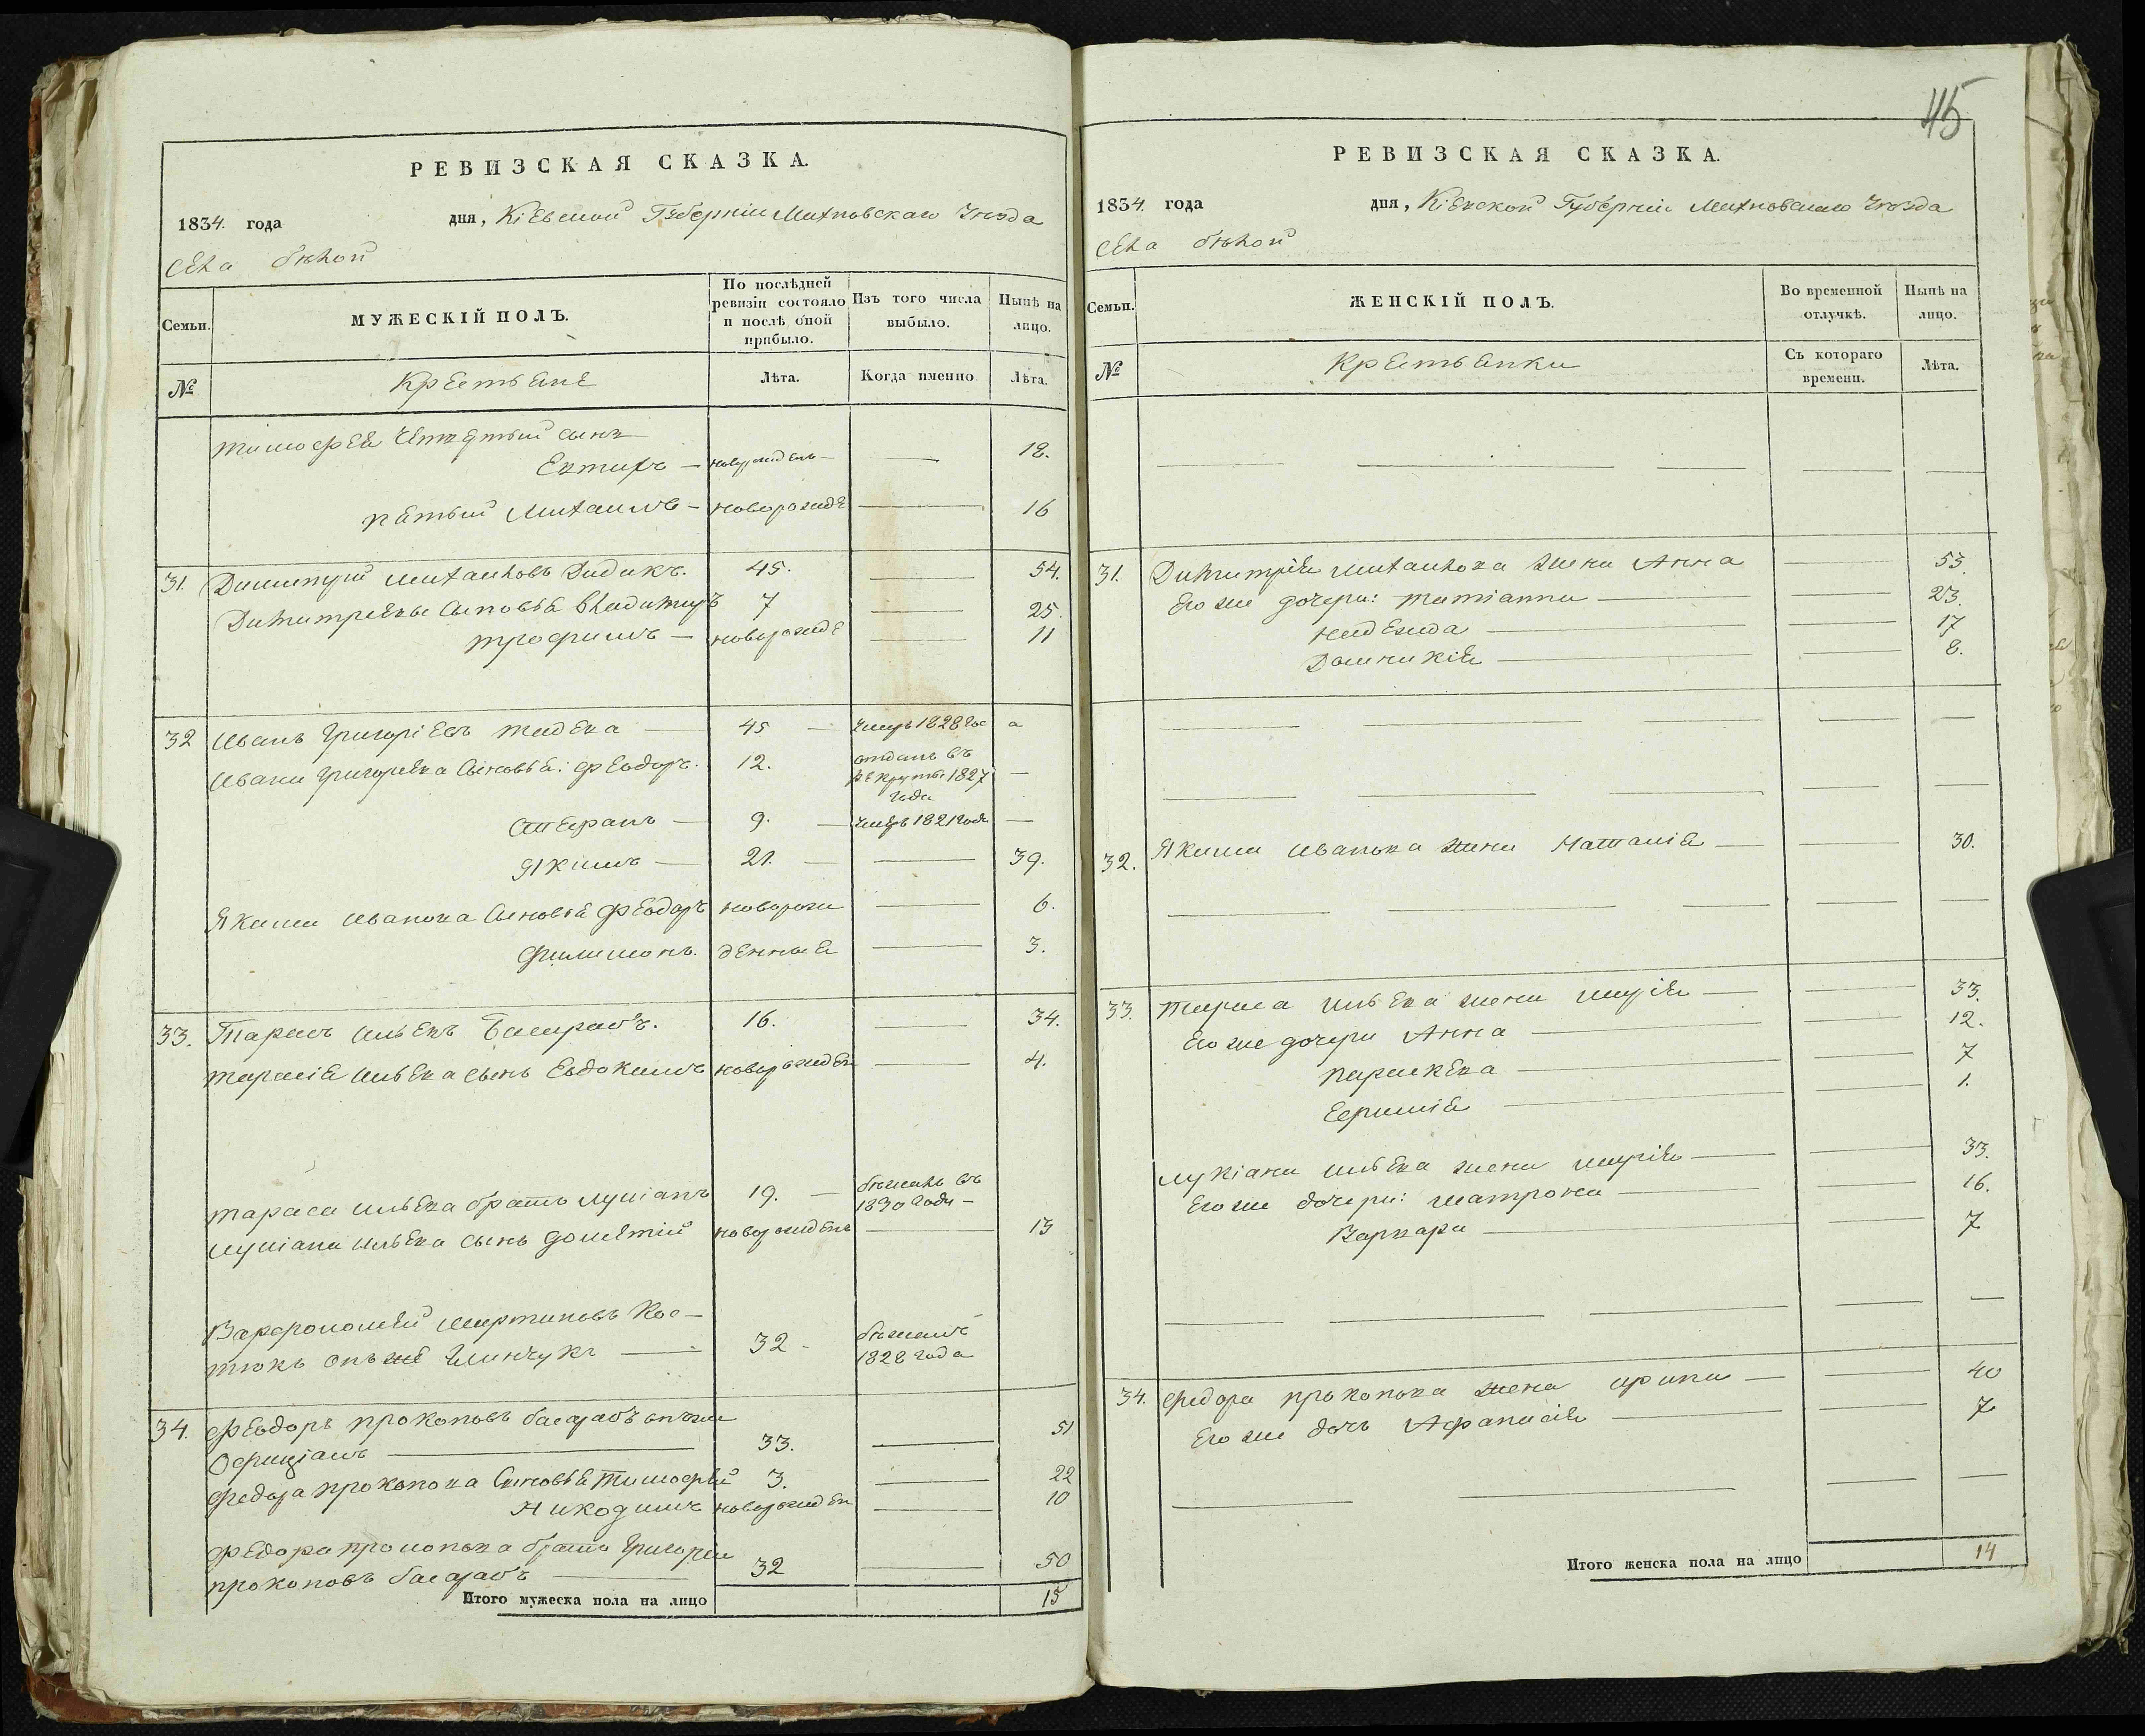 РЕВИЗСКАЯ СКАЗКА.
1834. года дня, Кіевской Губерніи Махновскаго Уѣзда
Села Бѣлой
Семьи. МУЖЕСКІЙ ПОЛЪ. По послѣдней ревизіи состояло и послѣ оной прибыло. Изъ того числа выбыло. Нынѣ на лицо.
№ Крестьяне Лѣта. Когда именно Лѣта.
Тимофея Четвертый сынъ
— новорожденъ — — 18.
пятый Михаилъ — новорожде — 16
31. Димитрій Михайловъ Дидикъ. 45. — 54.
Димитріева Сыновья Владимиръ 7 — 25.
Трофимъ — новорожде — 11
32 Иванъ Григоріевъ — 45 — умеръ 1828 го а
Ивана Григорьева Сыновья: Феодоръ. 12. отданъ въ рекруты 1827 года —
Стефанъ — 9. — умеръ 1821 года —
Якимъ — 21. — — 39.
Якима Иванова Сыновья Феодоръ новорож — 6.
Филимонъ. денные — 3.
33. Тарасъ Ильевъ Басарабъ. 16. — 34.
Тарасія Ильева сынъ Евдокимъ новорожден — 4.
Тараса Ильева братъ Лукіанъ 19. — бѣжалъ въ 1830 года —
Лукіана Ильева сынъ Дометій новорожденъ — 13
Варфоломей Мартиновъ Кос-
тюкъ онъ же — 32 - бѣжалъ 1828 года
34. Феодоръ Прокоповъ Басарабъ онъ же
— 33. — 51
Федора Прокопова Сыновья Тимофей 3. — 22
Никодимъ новорожден — 10
Федора Прокопова братъ Григорій
Прокоповъ Басарабъ — 32 — 50
Итого мужеска пола на лицо 15
45
РЕВИЗСКАЯ СКАЗКА.
1834. года дня, Кіевской Губерніи Махновскаго Уѣзда
Села Бѣлой
Семьи. ЖЕНСКІЙ ПОЛЪ. Во временной отлучкѣ. Нынѣ на лицо.
№ Крестьянки Съ котораго времени. Лѣта.
31. Димитрія Михайлова жена Анна — 53.
Его же дочери: Татіанна — — 23.
Надежда — — 17
Домникія — — 8.
32. Якима Иванова жена Наталія — — 30.
33. Тараса Ильева жена Марія — — 33.
Его же дочери Анна — — 12.
Параскева — — 7
Ефимія — — 1.
Лукіана Ильева жена Марія — — 33.
Его же дочери: Матрона — — 16.
Варвара — — 7
34. Федора Прокопова жена Ирина — — 40
Его же дочь Афанасія — — 7
Итого женска пола на лицо 14